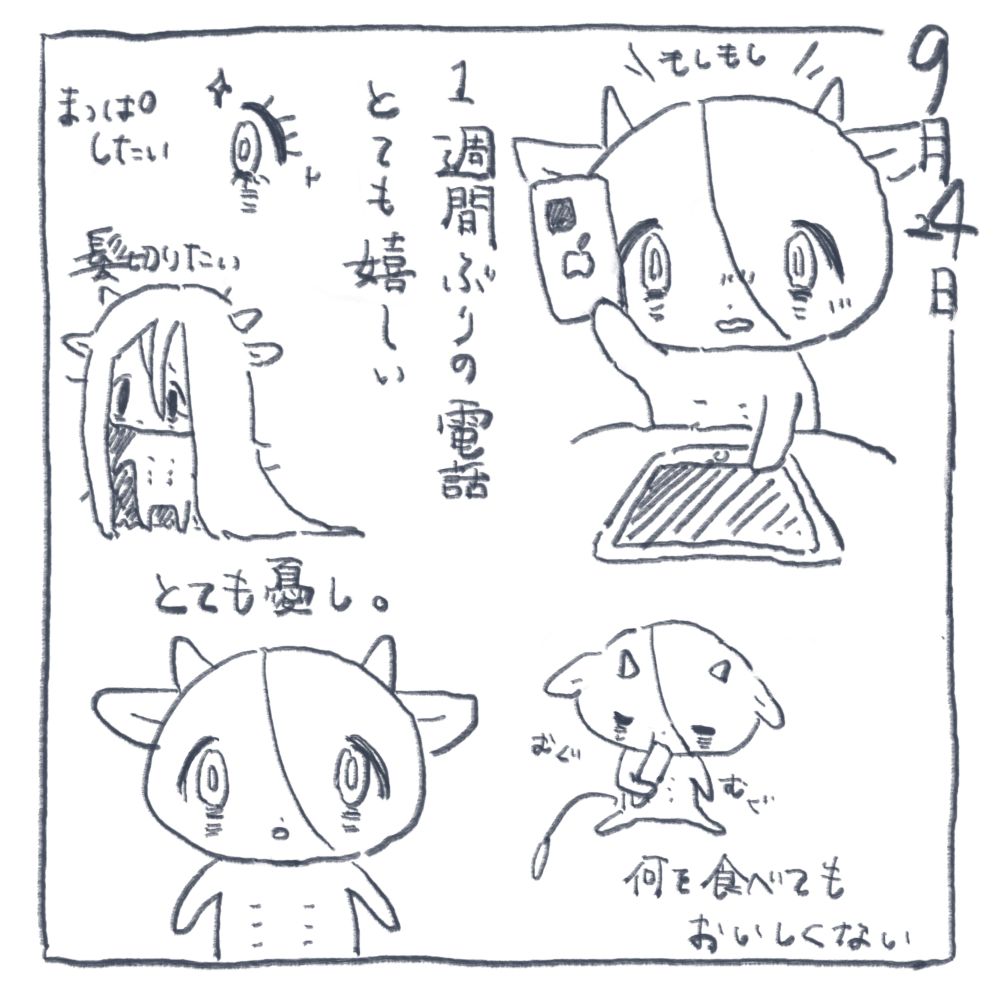 9月24日
もしもし
1週間ぶりの電話
とても嬉しい
まつぱ
したい
髪切りたい
むぐ
むぐ
何を食べても
おいしくない
とても憂し。